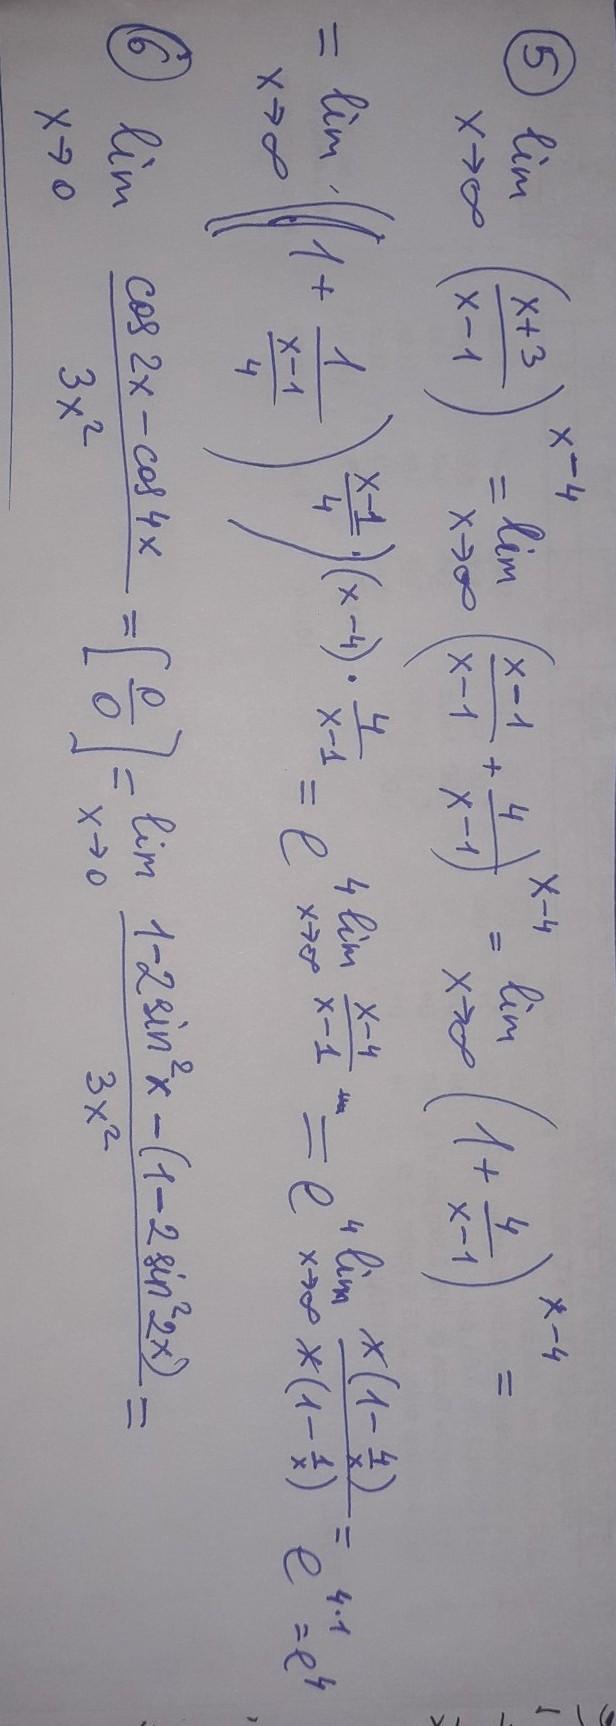 ⑤ lim x→∞ ((x+3)/(x-1))^(x-4) = lim x→∞ ((x-1)/(x-1) + 4/(x-1))^(x-4) = lim x→∞ (1 + 4/(x-1))^(x-4) =
= lim x→∞ ((1 + 1/((x-1)/4))^((x-1)/4))^((x-4)·4/(x-1)) = e^(4 lim x→∞ (x-4)/(x-1)) = e^(4 lim x→∞ (x(1-4/x))/(x(1-1/x))) = e^(4·1) = e^4
⑥ lim x→0 (cos2x - cos4x)/(3x²) = [0/0] = lim x→0 (1-2sin²x - (1-2sin²2x))/(3x²) =